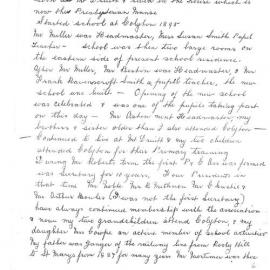 now this Presbyterian Manse
Started school at Colyton 1895
Mr Miller was Headmaster, Miss Susan Smith Pupil
Teacher — school was then two large rooms on
the eastern side of present school residence.
After Mr Miller, Mr was Headmaster, &
Frank a pupil teacher, the new
school was built — Opening of the new school
was celebrated & was one of the pupils taking part
on this day — Mr Headmaster, my
brothers & sister older than I also attended Colyton —
Continued to live at Mr Druitt & my two children
attended Colyton for their Primary training
During Mr Roberts term the first P & C Ass was formed
was Secretary for 10 years. Four Presidents in
that time Mr Noble Mr Mr Christie &
Mr Arthur (I was not the first Secretary)
have always continued membership with the association
& now my two grandchildren attend Colyton, & my
daughter Mrs an active member of school activities
My father was Ganger of the railway line from Rooty Hill
to St Marys from 1887 for many years Mr Mortimer was then